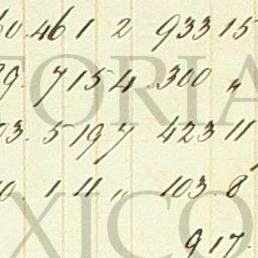 60. 46 1 2 933 15
39. 7 15 4 . 300 "
03. 5 19 7 423 11
0. 1 11 " 103. 8
917.
TORIA
XICO